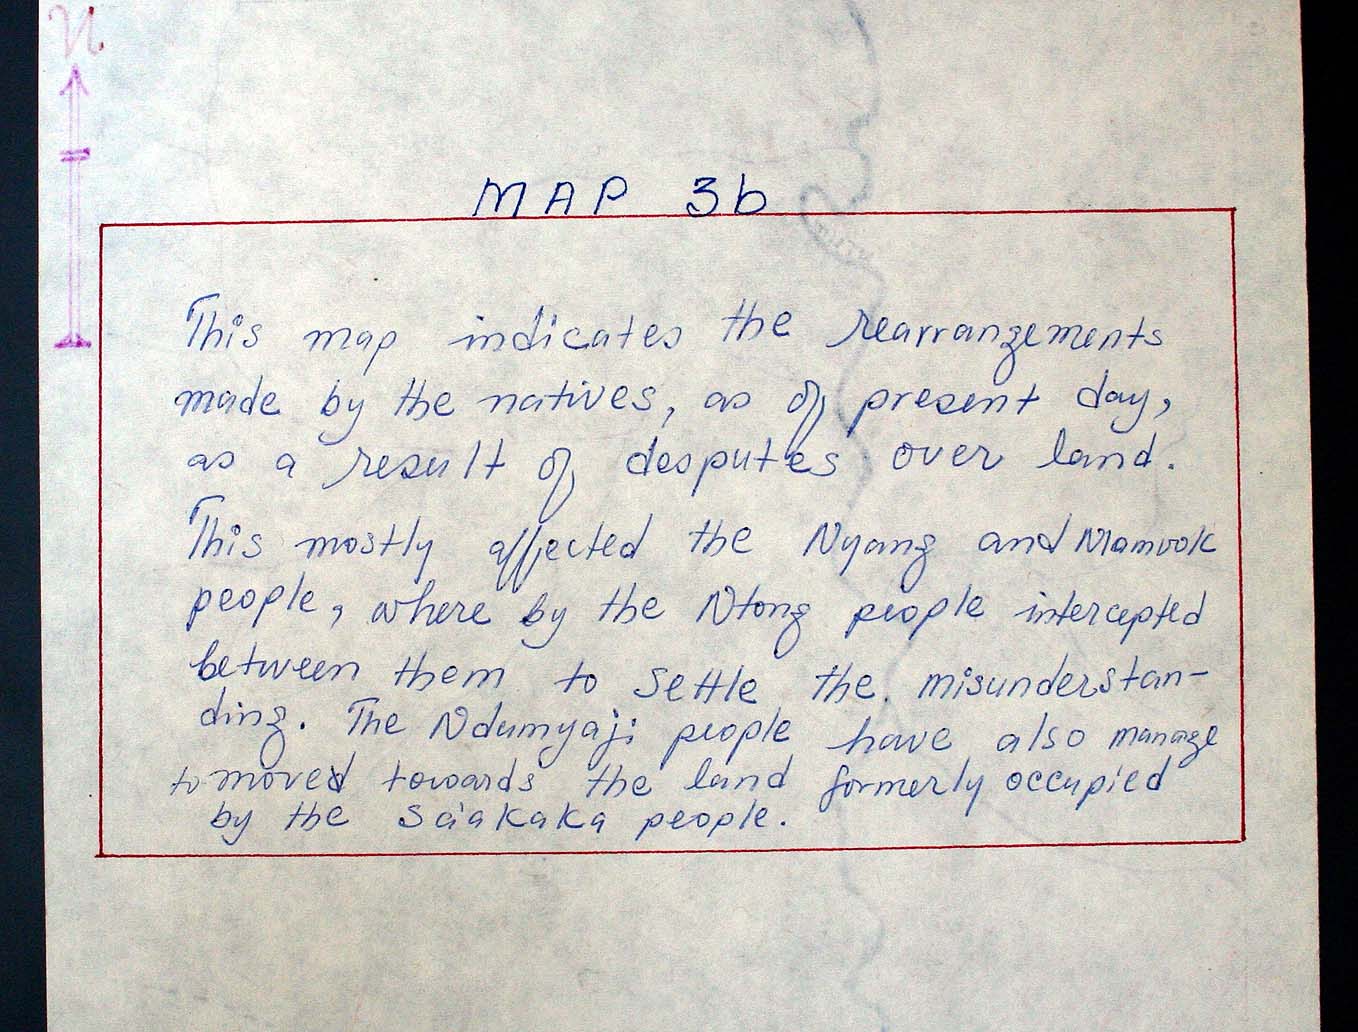 N
MAP 3b
This map indicates the rearrangements
made by the natives, as of present day,
as a result of desputes over land.
This mostly affected the Nyang and Mamvok
people, where by the Ntong people intercepted
between them to settle the misunderstan-
ding. The Ndumyaji people have also manage
to moved towards the land formerly occupied
by the Sa'akaka people.